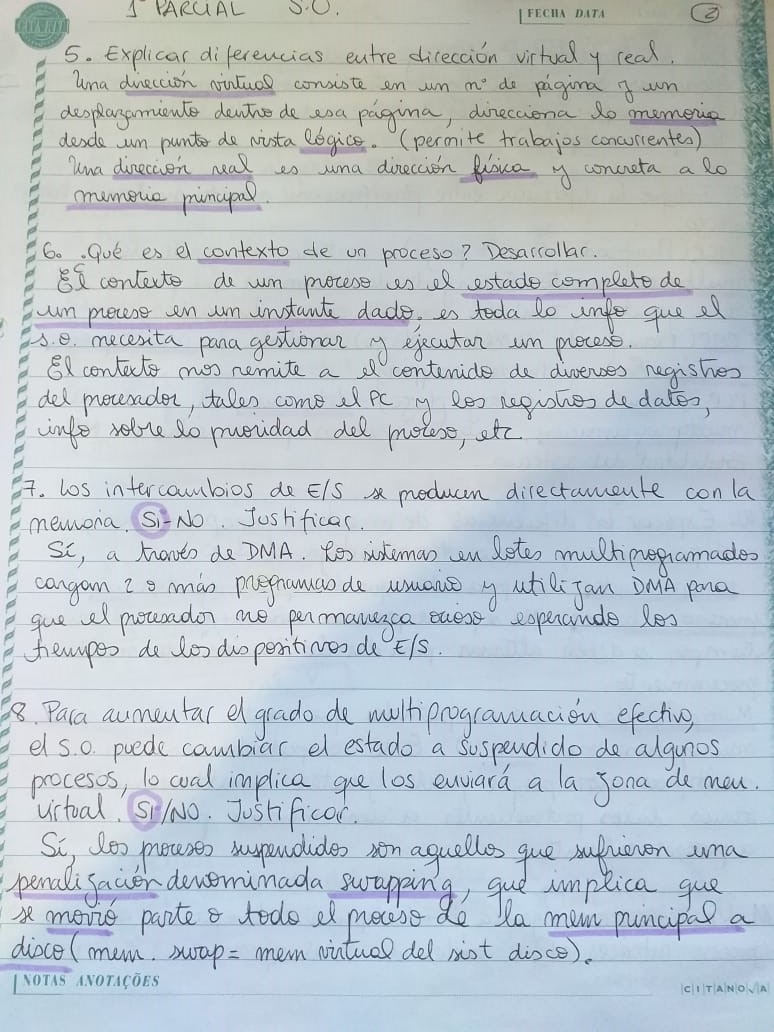 1° PARCIAL S.O.
FECHA DATA
2
5. Explicar diferencias entre dirección virtual y real.
Una dirección virtual consiste en un n° de página y un
desplazamiento dentro de esa página, direcciona la memoria
desde un punto de vista lógico. (permite trabajos concurrentes)
Una dirección real es una dirección física y concreta a la
memoria principal.
6. ¿Qué es el contexto de un proceso? Desarrollar.
El contexto de un proceso es el estado completo de
un proceso en un instante dado, es toda la info que el
s.o. necesita para gestionar y ejecutar un proceso.
El contexto nos remite a el contenido de diversos registros
del procesador, tales como el PC y los registros de datos,
info sobre la prioridad del proceso, etc
7. Los intercambios de E/S se producen directamente con la
memoria. Si-No. Justificar.
Sí, a través de DMA. Los sistemas en lotes multiprogramados
cargan 2 o más programas de usuario y utilizan DMA para
que el procesador no permanezca ocioso esperando los
tiempos de los dispositivos de E/S.
8. Para aumentar el grado de multiprogramación efectivo,
el S.O. puede cambiar el estado a suspendido de algunos
procesos, lo cual implica que los enviará a la zona de mem.
virtual. Si/No. Justificar.
Sí, los procesos suspendidos son aquellos que sufrieron una
penalización denominada swapping, que implica que
se movió parte o todo el proceso de la mem principal a
disco (mem. swap = mem virtual del sist disco).
NOTAS ANOTAÇÕES
CITANOVA